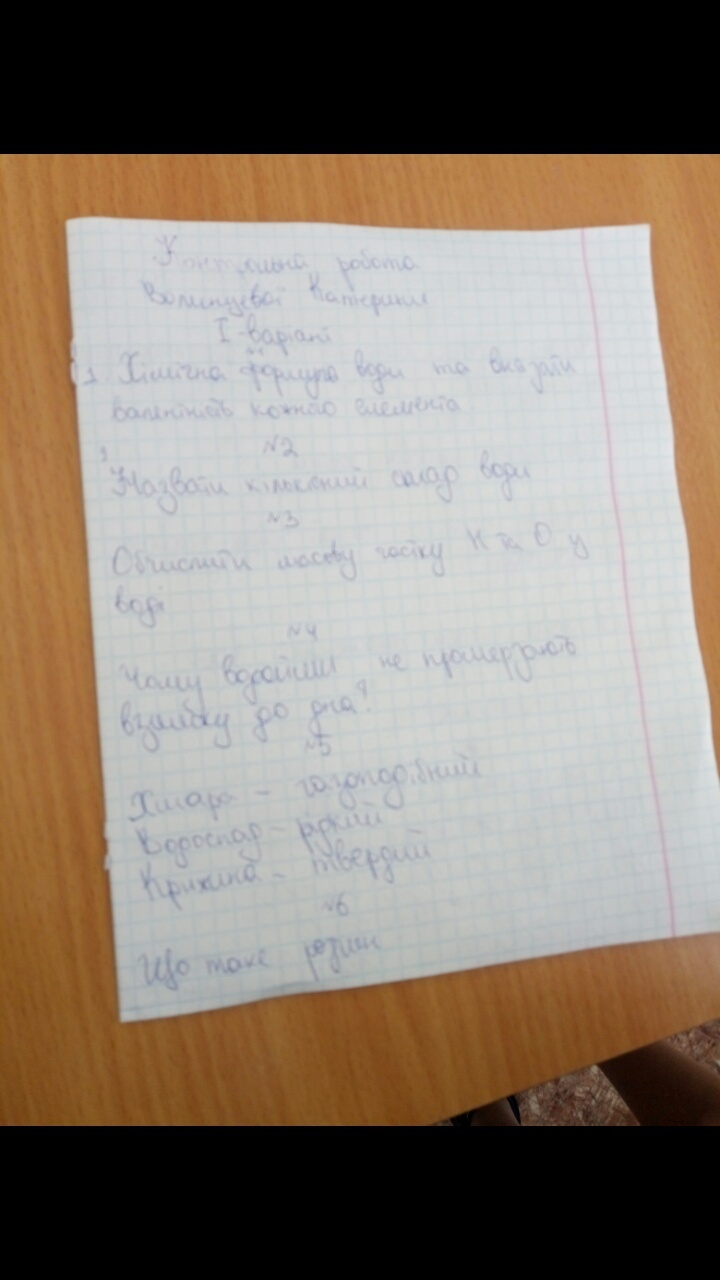 Контрольна робота
Волинцевої Катерини
I-варіант
1. Хімічна формула води та вказати
валентність кожного елемента
№2
Назвати кількісний склад води
№3
Обчислити масову частку H та O у
воді
№4
Чому водойми не промерзають
взимку до дна?
№5
Хмара - газоподібний
Водоспад - рідкий
Крижина - твердий
№6
Що таке розчин